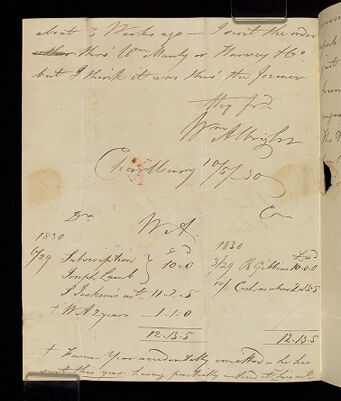 about 3 Weeks ago — I sent the order
thro' Wm Manly or Harvey & Co.
but I think it was thro' the former
thy frd.
Wm Albright
Charlbury 10/5/30
Dr W A. Cr
1830
6/29 Subscription
Joseph Lamb } 10.0
J Jackson's act. 11.2.5
+ W A 2 years 1.1.0
12.13.5
1830
3/29 R Gibbins 10.0.0
10/ Cash as above 2.13.5
12.13.5
+ Former Year accidentally omitted — he has
sent this year having partially